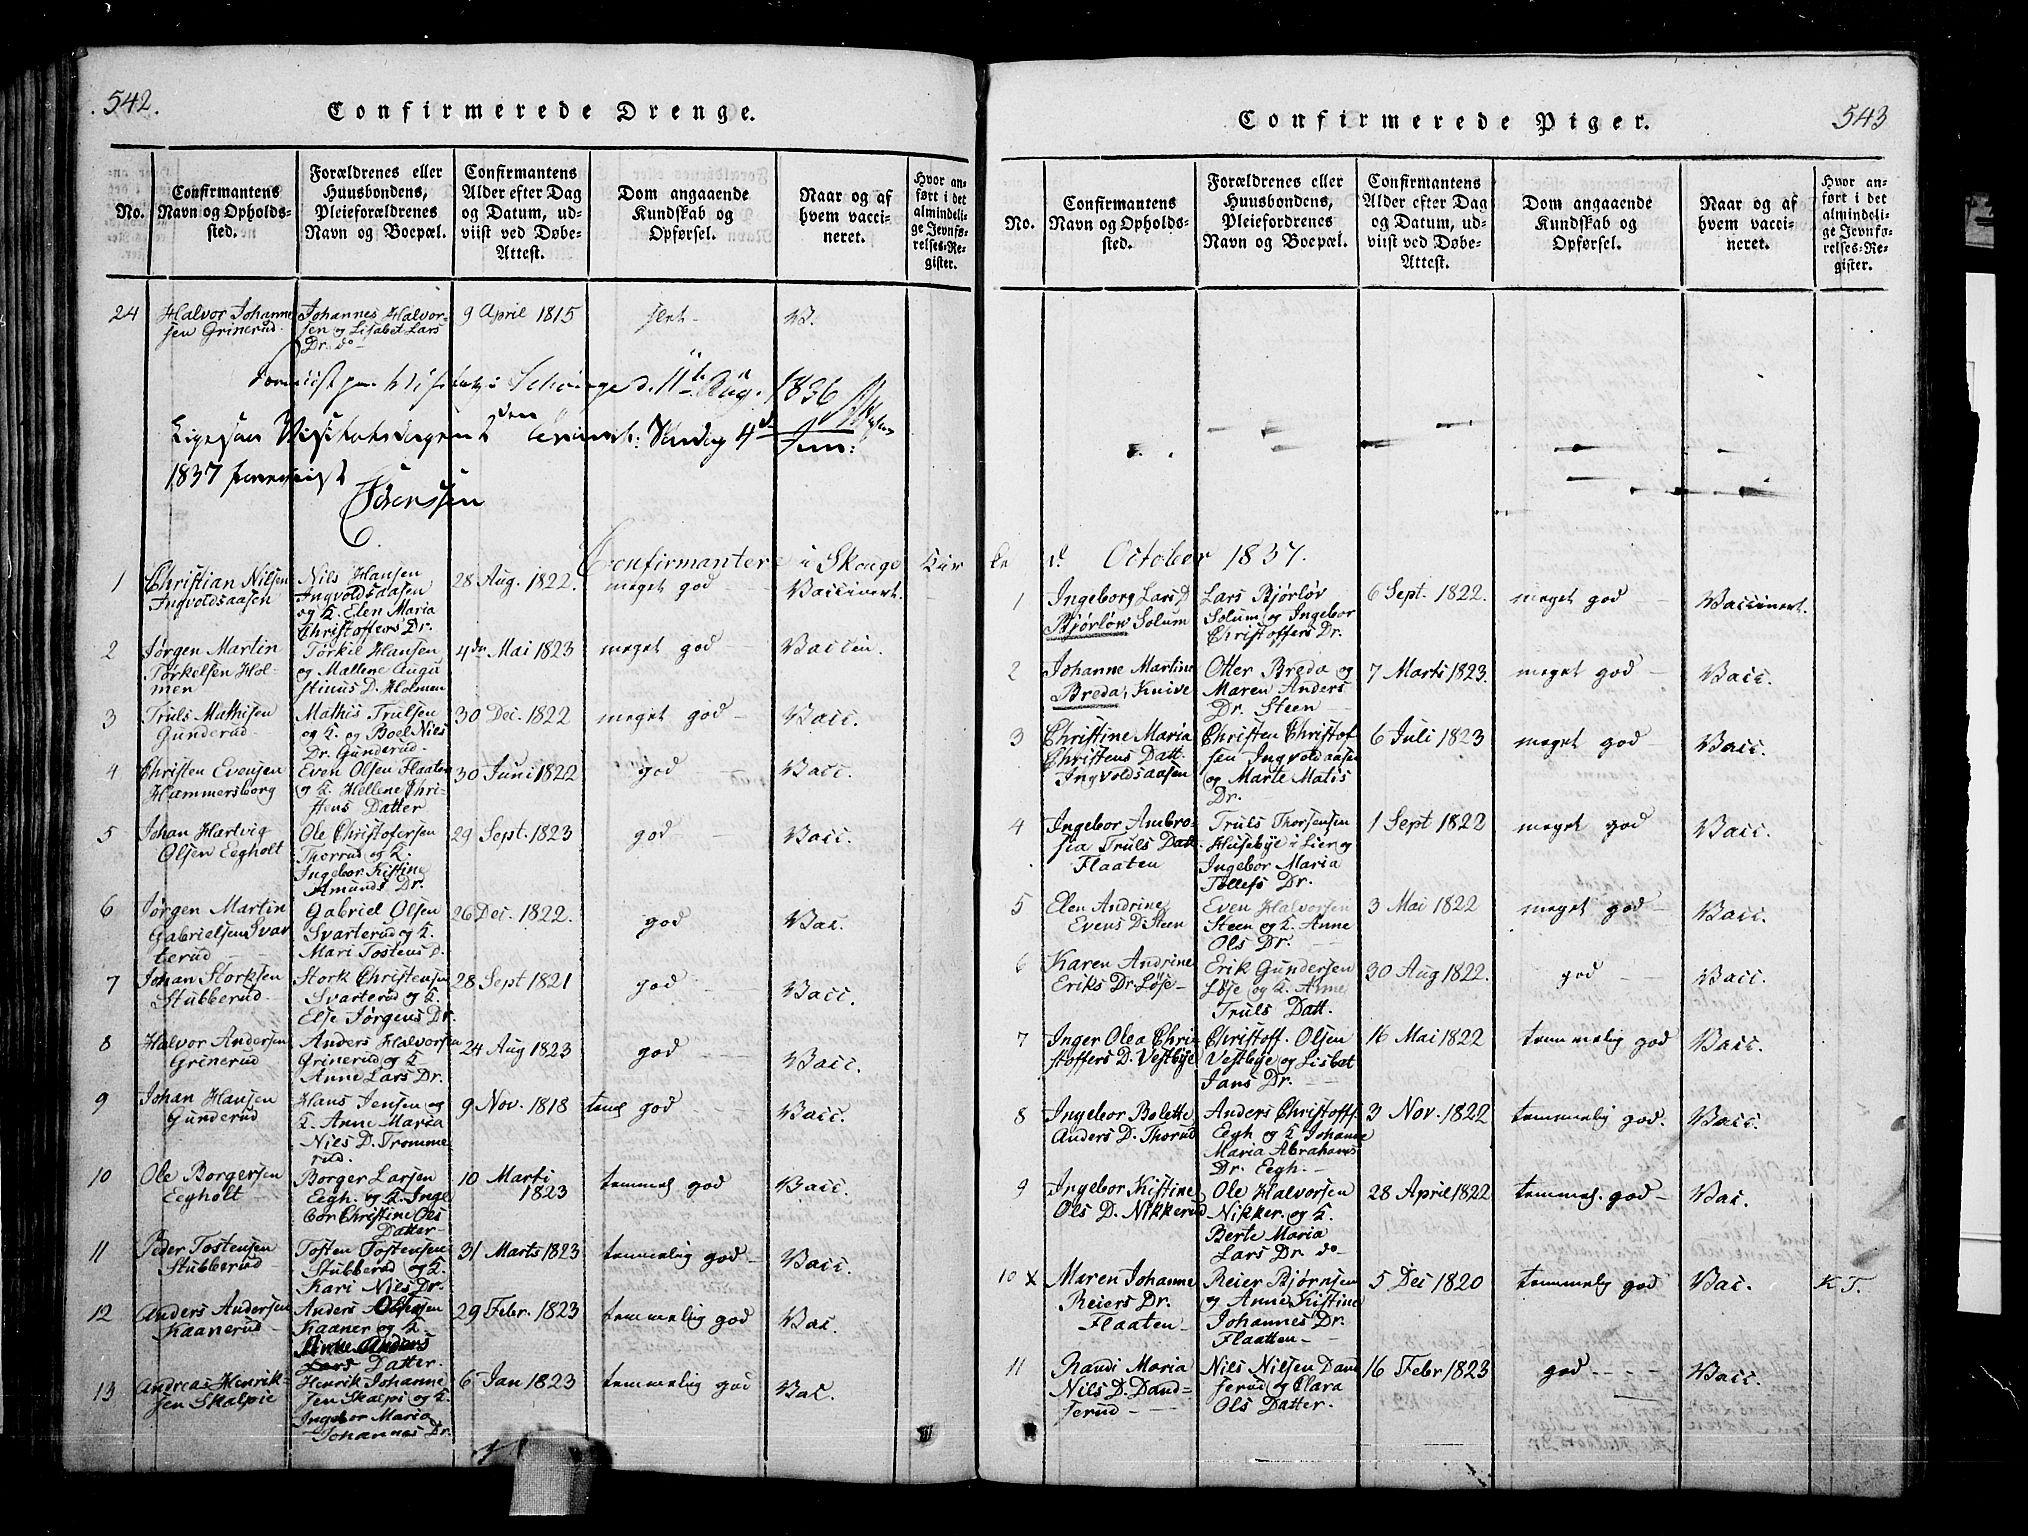 542.
Confirmerede Drenge.
No.
Confirmantens
Navn og Opholds-
sted.
Forældrenes eller
Huusbondens,
Pleieforældrenes
Navn og Boepæl.
Confirmantens
Alder efter Dag
og Datum, ud-
viist ved Døbe-
Attest.
Dom angaaende
Kundskab og
Opførsel.
Naar og af
hvem vacci-
neret.
Hvor an-
ført i det
almindeli-
ge Jevnfø-
relses-Re-
gister.
24
Halvor Johanne
sen Grinerud.
Johannes Halvor-
sen og Lisabet Lars
Dr. do
9 April 1815
slet
V.
1836
1837
Sørenssen
Confirmanter i Skouge Kir
1
Christian Nilsen
Ingvoldsaasen
Nils Hansen
Ingvoldsaasen
og K. Elen Maria
Christoffers Dr.
28 Aug. 1822.
meget god
Vaccinert.
2
Jørgen Martin
Torkelsen Hol-
men
Torkil Hansen
og Mallene Augu
stinus D. Holmen
4de Mai 1823
meget god
Vaccin.
3
Truls Mathisen
Gunderud
Mathis Trulsen
og K. og Boel Niels
Dr. Gunderud.
30 Dec. 1822
meget god
Vacc.
4
Christen Evensen
Hammersborg
Even Olsen Flaaten
og K. Hellene Chri-
stens Datter
30 Juni 1822
god
Vacc.
5
Johan Hartvig
Olsen Eegholt
Ole Christofersen
Thorrud og K.
Ingebor Kistine
Amunds Dr.
29 Sept. 1823
god
Vacc.
6
Jørgen Martin
Gabrielsen Svar
terud
Gabriel Olsen
Svarterud og K.
Mari Tostens D.
26 Dec. 1822.
god
Vac.
7
Johan Storksen
Stubberud
Stork Christensen
Svarterud og K.
Else Jørgens Dr.
28 Sept 1821
god
Vacc.
8
Halvor Andersen
Grinerud
Anders Halvorsen
Grinerud og K.
Anne Lars Dr.
24 Aug 1823
god
Vacc.
9
Johan Hansen
Gunderud
Hans Jensen og
K. Anne Maria
Nils D. Tromme
rud.
9 Nov. 1818
tem. god
Vacc.
10
Ole Borgersen
Eegholt
Borger Larsen
Eegh. og K. Inge
bor Christine Ols
Datter
10 Marti
1823
temmel god
Vacc.
11
Peder Tostensen
Stubberud
Tosten Tostensen
Stubberud og K.
Kari Nils Dr.
31 Marts 1823
temmelig god
Vacc.
12
Anders Andersen
Kaanerud
Anders Olsen
Kaaner og K.
Anne Anders
Datter.
29 Febr. 1823
temmelig god
Vac.
13
Andreas Henrik-
sen Skalpie
Henrik Johanne
sen Skalpi og K.
Ingebor Maria
Johannes Dr.
6 Jan 1823
temmelig god
Vac.
543
Confirmerede Piger.
No.
Confirmantens
Navn og Opholds-
sted.
Forældrenes eller
Huusbondens,
Pleiefordrenes
Navn og Boepæl.
Confirmantens
Alder efter Dag
og Datum, ud-
viist ved Døbe-
Attest.
Dom angaaende
Kundskab og
Opførsel.
Naar og af
hvem vacci-
neret.
Hvor an-
ført i det
almindeli-
ge Jevnfø-
relses-Re-
gister.
ke d. October 1837.
1
Ingeborg Lars D
Bjørløw Solum
Lars Bjørløv
Solum og Ingebor
Christoffers Dr.
6 Sept. 1822.
meget god
Vaccinert.
2
Johanne Martine
Breda, Knive
Otter Breda og
Maren Anders
Dr. Steen
7 Marts 1823.
meget god
Vacc.
3
Christine Maria
Christens Datt.
Ingvoldsaasen
Christen Christof
sen Ingvoldaasen
og Marte Matis
Dr.
6 Juli 1823
meget god
Vacc.
4
Ingebor Ambro-
sia Truls Datt.
Flaaten
Truls Thorsensen
Husebye i Lier og
Ingebor Maria
Tollefs Dr.
1 Sept 1822
meget god
Vacc.
5
Elen Andrine
Evens D. Steen
Even Halvorsen
Steen og K. Anne
Ols Dr.
3 Mai 1822
meget god
Vacc.
6
Karen Andrine
Eriks Dr. Løse
Erik Gundersen
Løse og K. Anne
Truls Datt.
30 Aug 1822.
god
Vacc.
7
Inger Olea Chri
stoffers D. Vestbye
Christoff. Olsen
Vestbye og Lisbet
Jans Dr.
16 Mai 1822
temmelig god
Vacc.
8
Ingebor Bolette
Anders D. Thorud
Anders Christoff.
Eegh og K. Johanne
Maria Abrahams
Dr. Eegh.
3 Nov. 1822
temmelig god.
Vacc.
9
Ingebor Kistine
Ols D. Nikkerud
Ole Halvorsen
Nikker. og K.
Berte Maria
Lars Dr do
28 April 1822
temmel. god
Vac.
10 x
Maren Johanne
Reiers Dr.
Flaaten
Reier Bjørnsen
og Anne Kistine
Johannes Dr.
Flaatten
5 Dec 1820
temmelig god
Vac.
K T.
11
Randi Maria
Nils D. Dand-
serud
Nils Nilsen Dand
serud og Clara
Ols Datter.
16 Febr 1823
god
Vacc.